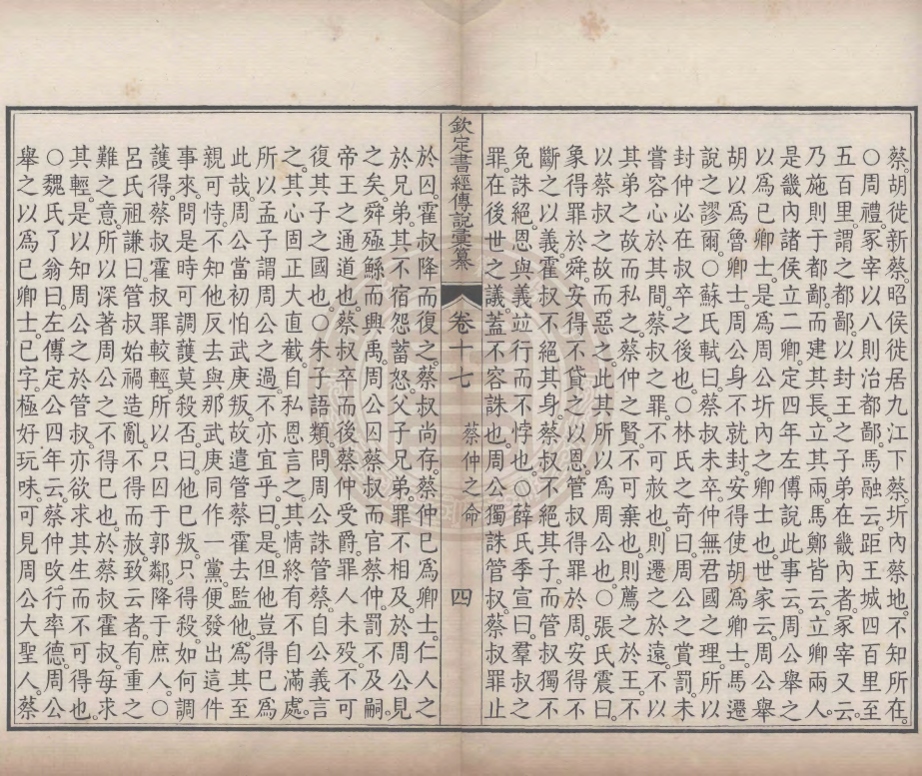 蔡。胡徙新蔡。昭侯徙居九江下蔡。圻內蔡地。不知所在。
○周禮。冢宰以八則治都鄙。馬融云。距王城四百里至
五百里。謂之都鄙。以封王之子弟在畿內者。冢宰又云。
乃施則于都鄙。而建其長。立其兩。馬鄭皆云。立卿兩人。
是畿內諸侯立二卿。定四年左傳說此事云。周公舉之
以爲已卿士。是爲周公圻內之卿士也。世家云。周公舉
胡以爲魯卿士。周公身不就封。安得使胡爲卿士。馬遷
說之謬爾。○蘇氏軾曰。蔡叔未卒。仲無君國之理。所以
封仲必在叔卒之後也。○林氏之奇曰。周公之賞罰。未
嘗容心於其間。蔡叔之罪。不可赦也。則遷之於遠。不以
其弟之故而私之。蔡仲之賢。不可棄也。則薦之於王。不
以蔡叔之故而惡之。此其所以爲周公也。○張氏震曰。
象得罪於舜。安得不貸之以恩。管叔得罪於周。安得不
斷之以義。霍叔不絕其身。蔡叔不絕其子。而管叔獨不
免誅絕。恩與義竝行而不悖也。○薛氏季宣曰。羣叔之
罪。在後世之議。蓋不容誅也。周公獨誅管叔。蔡叔罪止
欽定書經傳說彙纂 卷十七 蔡仲之命 四
於囚。霍叔降而復之。蔡叔尚存。蔡仲已爲卿士。仁人之
於兄弟。其不宿怨蓄怒。父子兄弟。罪不相及。於周公見
之矣。舜殛鯀而興禹。周公囚蔡叔而官蔡仲。罰不及嗣。
帝王之通道也。蔡叔卒而後蔡仲受爵。罪人未歿。不可
復其子之國也。○朱子語類。問周公誅管蔡。自公義言
之。其心固正大直截。自私恩言之。其情終有不自滿處。
所以孟子謂周公之過。不亦宜乎。曰。是。但他豈得已爲
此哉。周公當初怕武庚叛。故遣管蔡霍去監他。爲其至
親可恃。不知他反去與那武庚同作一黨。便發出這件
事來。問是時可調護莫殺否。曰。他已叛。只得殺。如何調
護得。蔡叔霍叔罪較輕。所以只囚于郭鄰。降于庶人。○
呂氏祖謙曰。管叔始禍造亂。不得而赦。致云者。有重之
難之意。所以深著周公之不得已也。於蔡叔霍叔。每求
其輕。是以知周公之於管叔。亦欲求其生而不可得也。
○魏氏了翁曰。左傳定公四年云。蔡仲改行率德。周公
舉之以爲已卿士。已字。極好玩味。可見周公大聖人。蔡